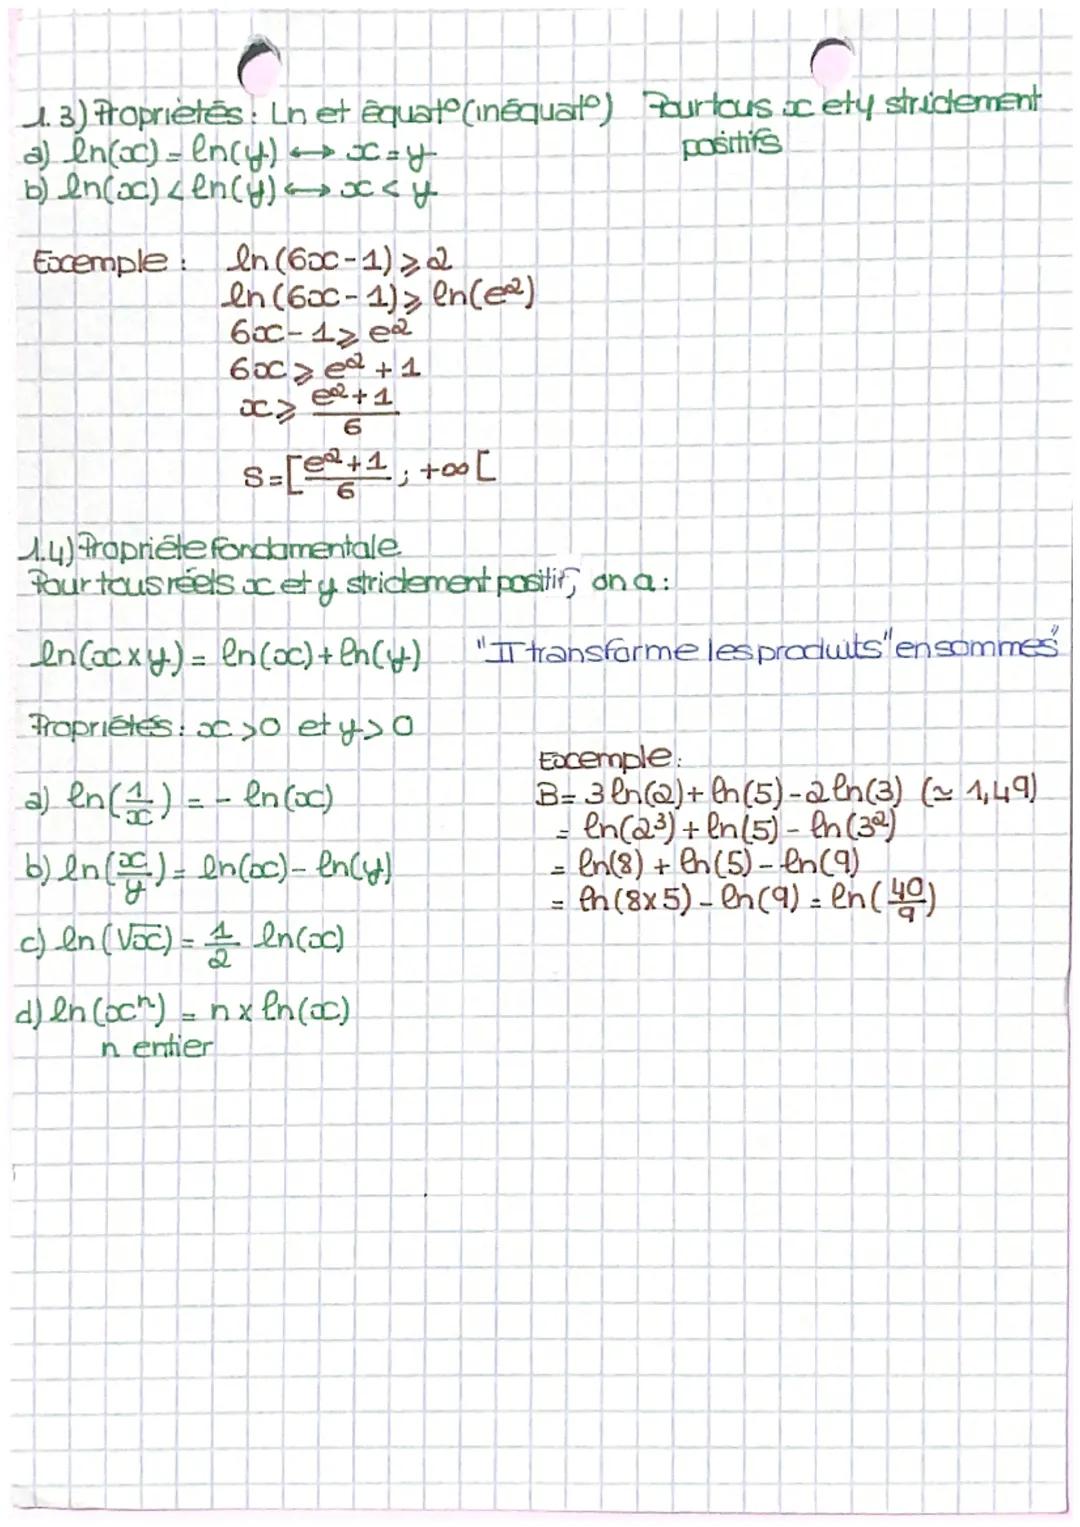 1.3) Propriétés : Ln et équat° (inéquat°) Pour tous x et y strictement
positifs
a) ln(x) = ln(y) ↔ x = y
b) ln(x) < ln(y) ↔ x < y
Exemple : ln(6x-1) ⩾ 2
ln(6x-1) ⩾ ln(e²)
6x-1 ⩾ e²
6x ⩾ e² + 1
x ⩾ (e²+1)/6
S = [(e²+1)/6 ; +∞[
1.4) Propriété fondamentale
Pour tous réels x et y strictement positif, on a :
ln(x×y) = ln(x) + ln(y) "Il transforme les produits" en sommes"
Propriétés : x > 0 et y > 0
a) ln(1/x) = - ln(x)
b) ln(x/y) = ln(x) - ln(y)
c) ln(√x) = 1/2 ln(x)
d) ln(xⁿ) = n × ln(x)
n entier
Exemple :
B = 3 ln(2) + ln(5) - 2 ln(3) (≃ 1,49)
= ln(2³) + ln(5) - ln(3²)
= ln(8) + ln(5) - ln(9)
= ln(8×5) - ln(9) = ln(40/9)